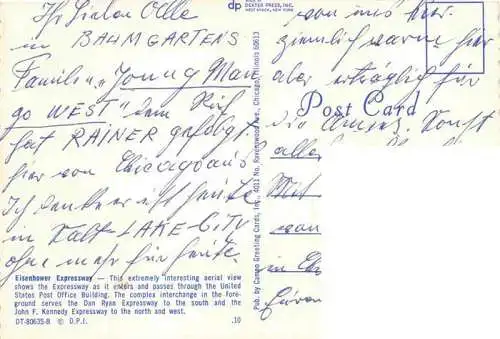 Ihr Lieben Alle
in BAUMGARTENS
Familie. "Young Man
go WEST" dem Ruf
hat RAINER gefolgt.
hier von Chicago aus
Ich denke er ist heute
in Salt-LAKE-CITY
ohne mehr für heute.
Eisenhower Expressway — This extremely interesting aerial view
shows the Expressway as it enters and passes through the United
States Post Office Building. The complex interchange in the fore-
ground serves the Dan Ryan Expressway to the south and the
John F. Kennedy Expressway to the north and west.
DT-80635-B © D.P.I. .10
dp
DEXTER PRESS, INC.
WEST NYACK, NEW YORK
Pub. by Campo Greeting Cards, Inc., 4011 No. Ravenswood Ave., Chicago, Illinois 60613
Post Card
von uns hier.
ziemlich warm hier
aber erträglich für
die Sonst
alle
Mit
wan
in